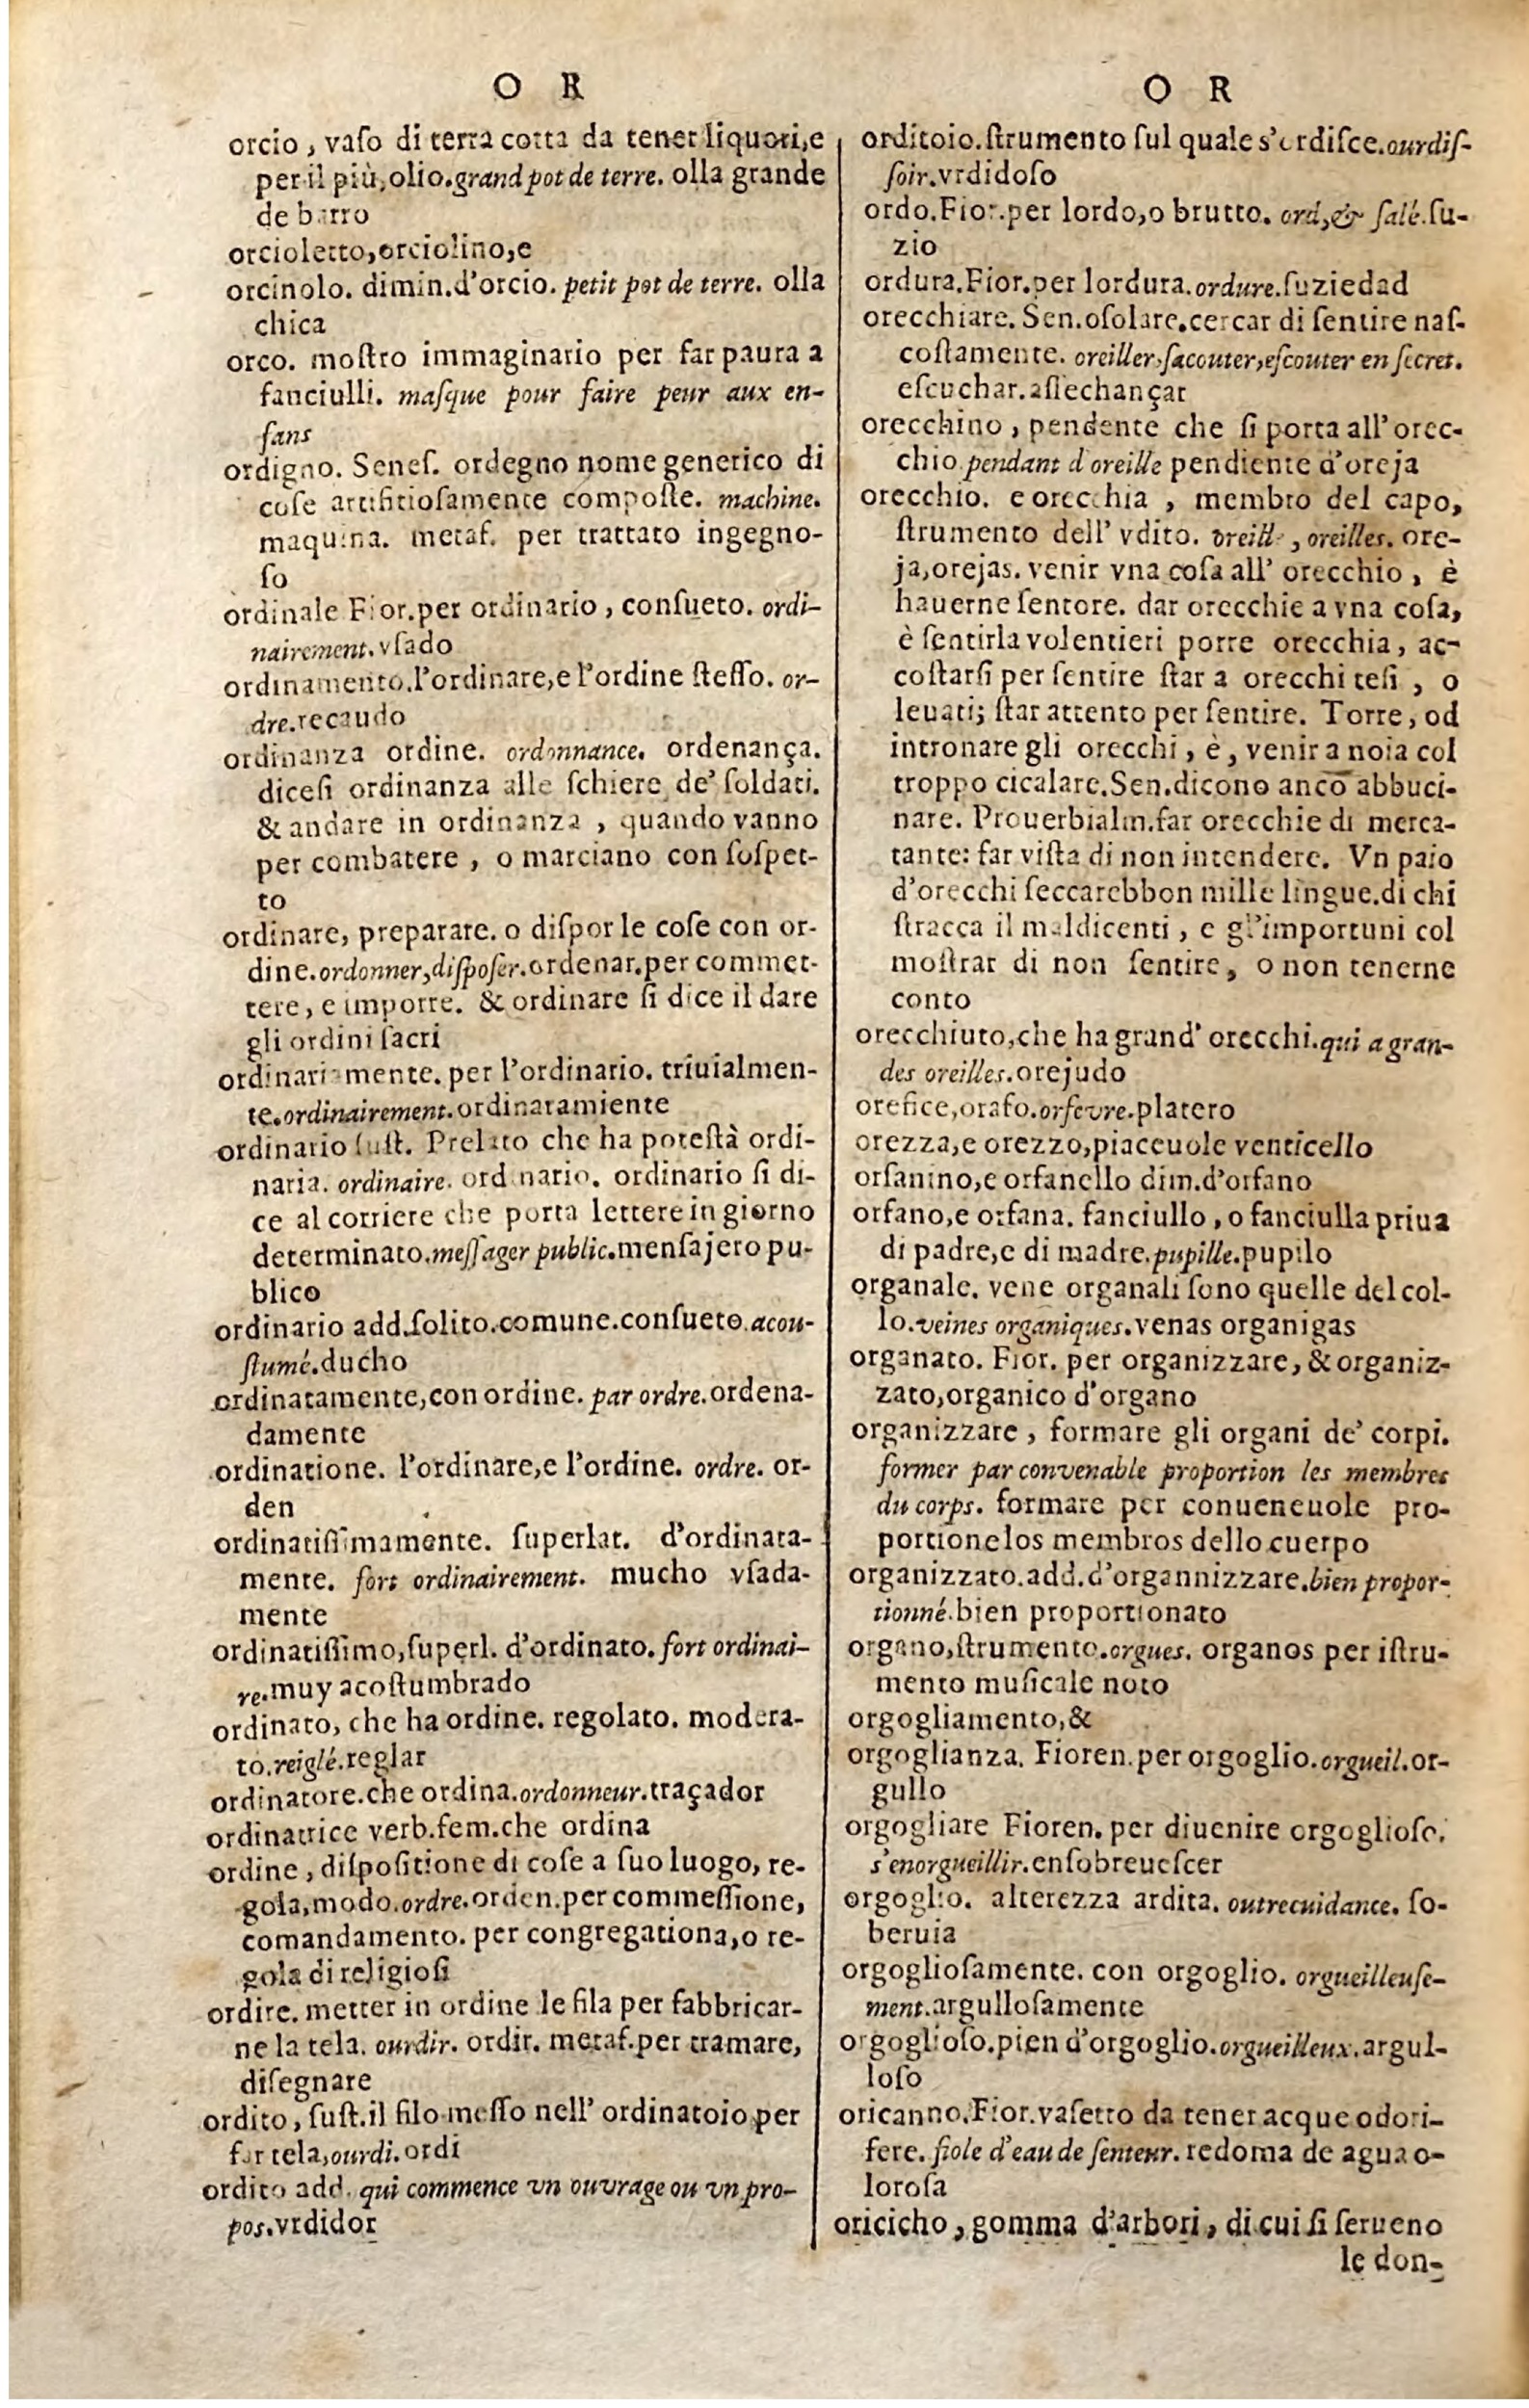 O R
orcio, vaſo di terra cotta da tener liquori, e
per il più, olio. grand pot de terre. olla grande
de barro
orcioletto, orciolino, e
orcinolo. dimin. d'orcio. petit pot de terre. olla
chica
orco. moſtro immaginario per far paura a
fanciulli. maſque pour faire peur aux en-
fans
ordigno. Seneſ. ordegno nome generico di
coſe artifitioſamente compoſte. machine.
maquina. metaf. per trattato ingegno-
ſo
ordinale Fior. per ordinario, conſueto. ordi-
nairement. vſado
ordinamento. l'ordinare, e l'ordine ſteſſo. or-
dre. recaudo
ordinanza ordine. ordonnance. ordenança.
diceſi ordinanza alle ſchiere de' ſoldati.
& andare in ordinanza, quando vanno
per combatere, o marciano con ſoſpet-
to
ordinare, preparare. o diſpor le coſe con or-
dine. ordonner, diſpoſer. ordenar. per commet-
tere, e imporre. & ordinare ſi dice il dare
gli ordini ſacri
ordinariamente. per l'ordinario. triuialmen-
te. ordinairement. ordinaramiente
ordinario ſuſt. Prelato che ha poteſtà ordi-
naria. ordinaire. ordinario. ordinario ſi di-
ce al corriere che porta lettere in giorno
determinato. meſſager public. menſajero pu-
blico
ordinario add. ſolito. comune. conſueto. acou-
ſtumé. ducho
ordinatamente, con ordine. par ordre. ordena-
damente
ordinatione. l'ordinare, e l'ordine. ordre. or-
den
ordinatiſſimamente. ſuperlat. d'ordinata-
mente. fort ordinairement. mucho vſada-
mente
ordinatiſſimo, ſuperl. d'ordinato. fort ordinai-
re. muy acoſtumbrado
ordinato, che ha ordine. regolato. modera-
to. reiglé. reglar
ordinatore. che ordina. ordonneur. traçador
ordinatrice verb. fem. che ordina
ordine, diſpoſitione di coſe a ſuo luogo, re-
gola, modo. ordre. orden. per commeſſione,
comandamento. per congregationa, o re-
gola di religioſi
ordire. metter in ordine le fila per fabbricar-
ne la tela. ourdir. ordir. metaf. per tramare,
diſegnare
ordito, ſuſt. il filo meſſo nell' ordinatoio per
far tela, ourdi. ordi
ordito add. qui commence vn ouvrage ou vn pro-
pos. vrdidor
O R
orditoio. ſtrumento ſul quale s'ordiſce. ourdiſ-
ſoir. vrdidoſo
ordo. Fior. per lordo, o brutto. ord, & ſalé. ſu-
zio
ordura. Fior. per lordura. ordure. ſuziedad
orecchiare. Sen. oſolare. cercar di ſentire naſ-
coſtamente. oreiller, ſacouter, eſcouter en ſecret.
eſcuchar. aſſechançar
orecchino, pendente che ſi porta all' orec-
chio. pendant d'oreille pendiente d'oreja
orecchio. e orecchia, membro del capo,
ſtrumento dell' vdito. oreille, oreilles. ore-
ja, orejas. venir vna coſa all' orecchio, è
hauerne ſentore. dar orecchie a vna coſa,
è ſentirla volentieri porre orecchia, ac-
coſtarſi per ſentire ſtar a orecchi teſi, o
leuati; ſtar attento per ſentire. Torre, od
intronare gli orecchi, è, venir a noia col
troppo cicalare. Sen. dicono anco abbuci-
nare. Prouerbialm. far orecchie di merca-
tante: far viſta di non intendere. Vn paio
d'orecchi ſeccarebbon mille lingue. di chi
ſtracca il maldicenti, e gl'importuni col
moſtrar di non ſentire, o non tenerne
conto
orecchiuto, che ha grand' orecchi. qui a gran-
des oreilles. orejudo
orefice, orafo. orfevre. platero
orezza, e orezzo, piaceuole venticello
orfanino, e orfanello dim. d'orfano
orfano, e orfana. fanciullo, o fanciulla priua
di padre, e di madre. pupille. pupilo
organale. vene organali ſono quelle del col-
lo. veines organiques. venas organigas
organato. Fior. per organizzare, & organiz-
zato, organico d'organo
organizzare, formare gli organi de' corpi.
former par convenable proportion les membres
du corps. formare per conueneuole pro-
portione los membros dello cuerpo
organizzato. add. d'organnizzare. bien propor-
tionné. bien proportionato
organo, ſtrumento. orgues. organos per iſtru-
mento muſicale noto
orgogliamento, &
orgoglianza. Fioren. per orgoglio. orgueil. or-
gullo
orgogliare Fioren. per diuenire orgoglioſo.
s'enorgueillir. enſobreueſcer
orgoglio. alterezza ardita. outrecuidance. ſo-
beruia
orgoglioſamente. con orgoglio. orgueilleuſe-
ment. argulloſamente
orgoglioſo. pien d'orgoglio. orgueilleux. argul-
loſo
oricanno. Fior. vaſetto da tener acque odori-
fere. fiole d'eau de ſenteur. redoma de agua o-
loroſa
oricicho, gomma d'arbori, di cui ſi ſerueno
le don-